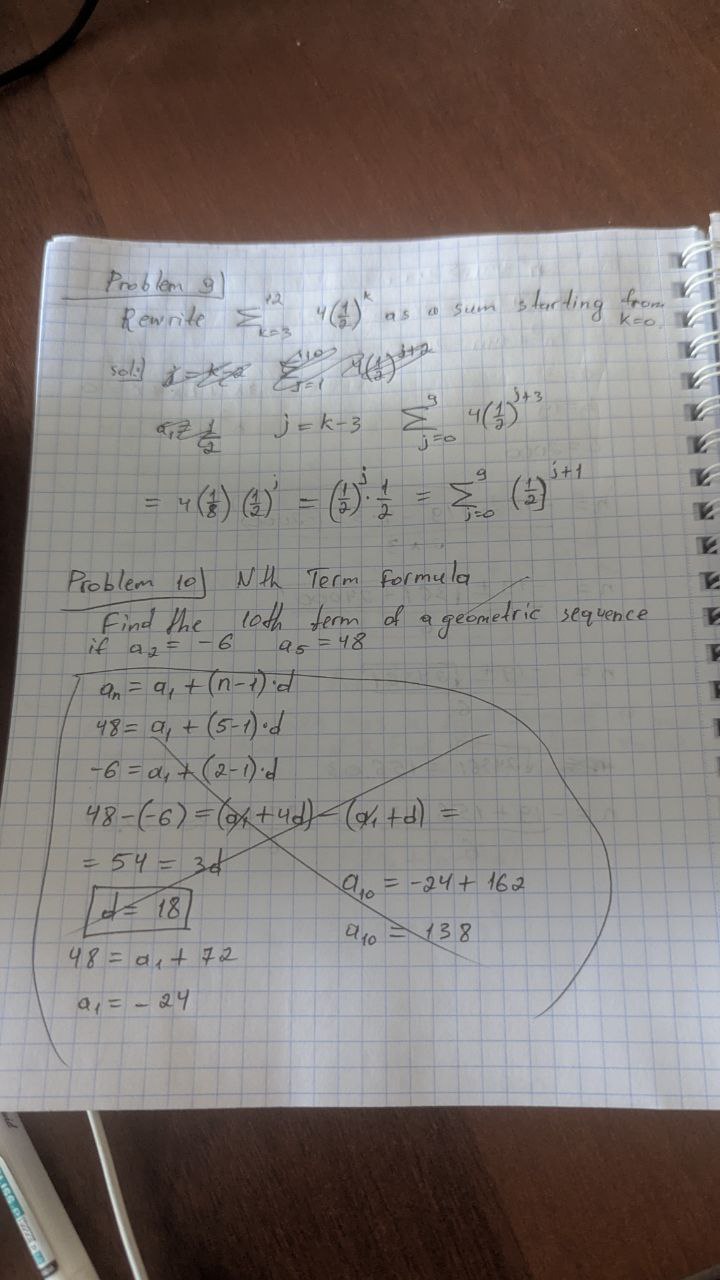 Problem 9)
Rewrite ∑_{k=3}^{12} 4(1/2)^k as a sum starting from k=0.
sol:)
j = k-3 ∑_{j=0}^{9} 4(1/2)^{j+3}
= 4(1/8)(1/2)^j = (1/2)^j · 1/2 = ∑_{j=0}^{9} (1/2)^{j+1}
Problem 10) Nth Term formula
Find the 10th term of a geometric sequence
if a₂ = -6 a₅ = 48
aₙ = a₁ + (n-1)·d
48 = a₁ + (5-1)·d
-6 = a₁ + (2-1)·d
48-(-6) = (a₁ + 4d) - (a₁ + d) =
= 54 = 3d
d = 18
48 = a₁ + 72
a₁ = -24
a₁₀ = -24 + 162
a₁₀ = 138